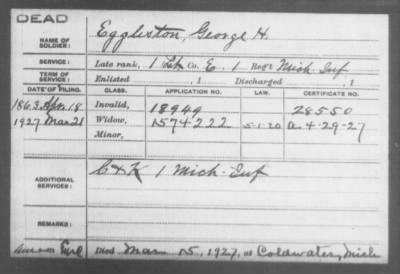 DEAD
NAME OF SOLDIER: Eggleston, George H.
SERVICE: Late rank, 1 Lt. Co. E. 1 Reg't Mich. Inf
TERM OF SERVICE: Enlisted , 1 Discharged , 1
DATE OF FILING. CLASS. APPLICATION NO. LAW. CERTIFICATE NO.
1863 Apr. 18 Invalid, 18949 28550
1927 Mar 21 Widow, 1574222 5-1-20 4-29-27
Minor,
ADDITIONAL SERVICES: K 1 Mich. Inf
REMARKS:
Died Mar 15, 1927, at Coldwater, Mich